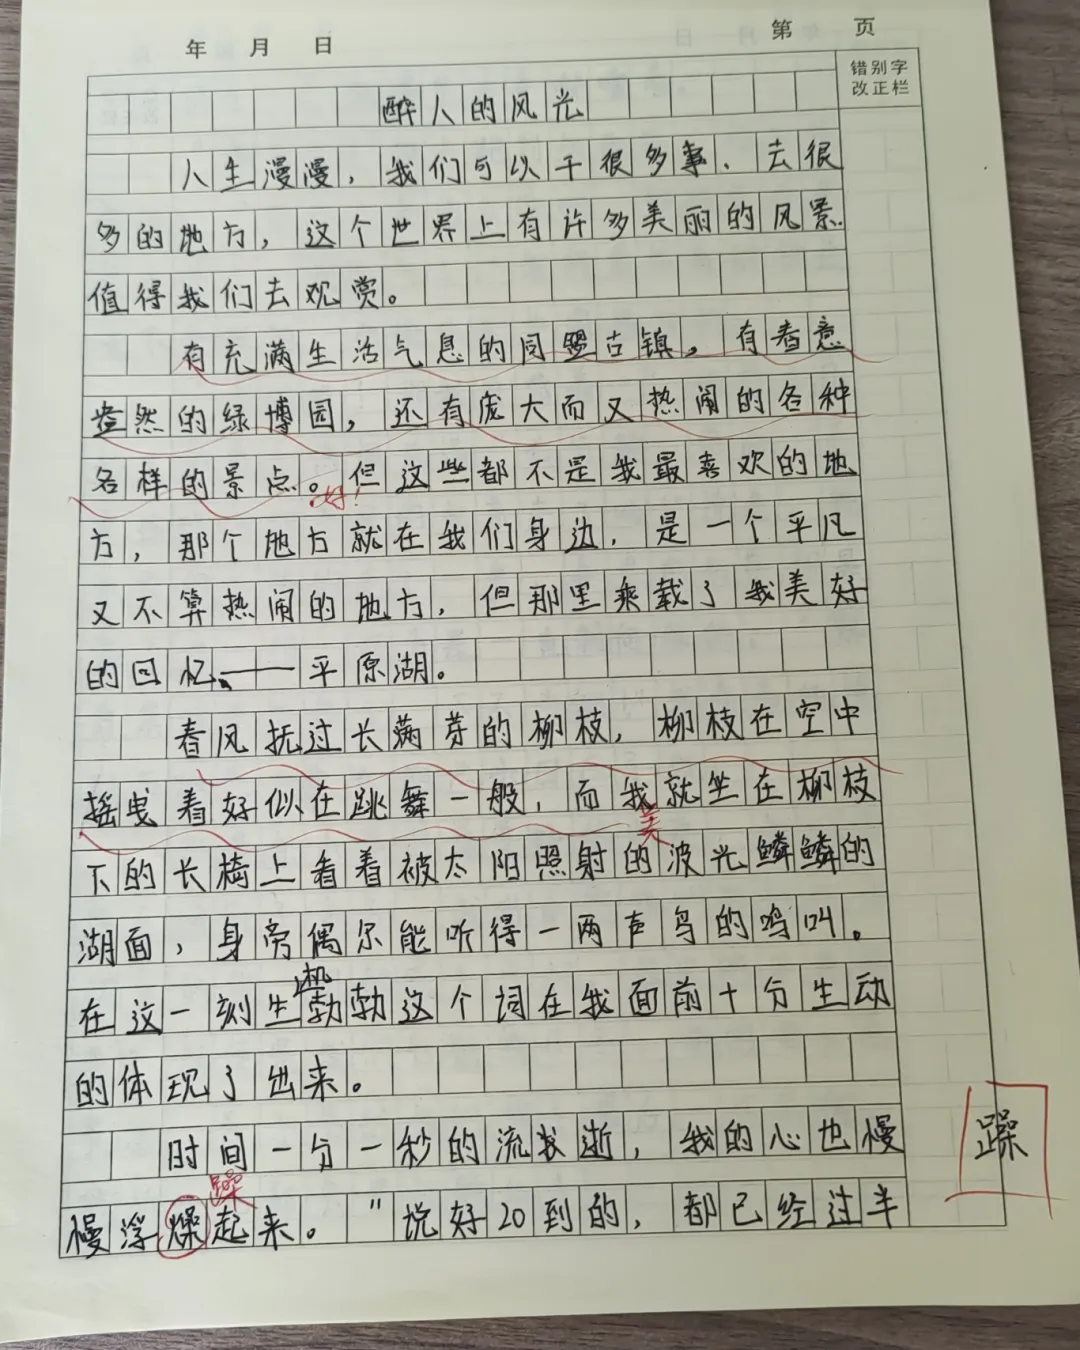 第 页
年 月 日
错别字
改正栏
醉人的风光
人生漫漫，我们可以干很多事、去很
多的地方，这个世界上有许多美丽的风景
值得我们去观赏。
有充满生活气息的同盟古镇，有春意
盎然的绿博园，还有庞大而又热闹的各种
各样的景点。但这些都不是我最喜欢的地
好！
方，那个地方就在我们身边，是一个平凡
又不算热闹的地方，但那里乘载了我美好
的回忆、——平原湖。
春风抚过长满芽的柳枝，柳枝在空中
摇曳着好似在跳舞一般，而我就坐在柳枝
美
下的长椅上看着被太阳照射的波光鳞鳞的
湖面，身旁偶尔能听得一两声鸟的鸣叫。
在这一刻生机勃勃这个词在我面前十分生动
的体现了出来。
时间一分一秒的流逝，我的心也慢
躁
躁
慢浮燥起来。"说好20到的，都已经过半